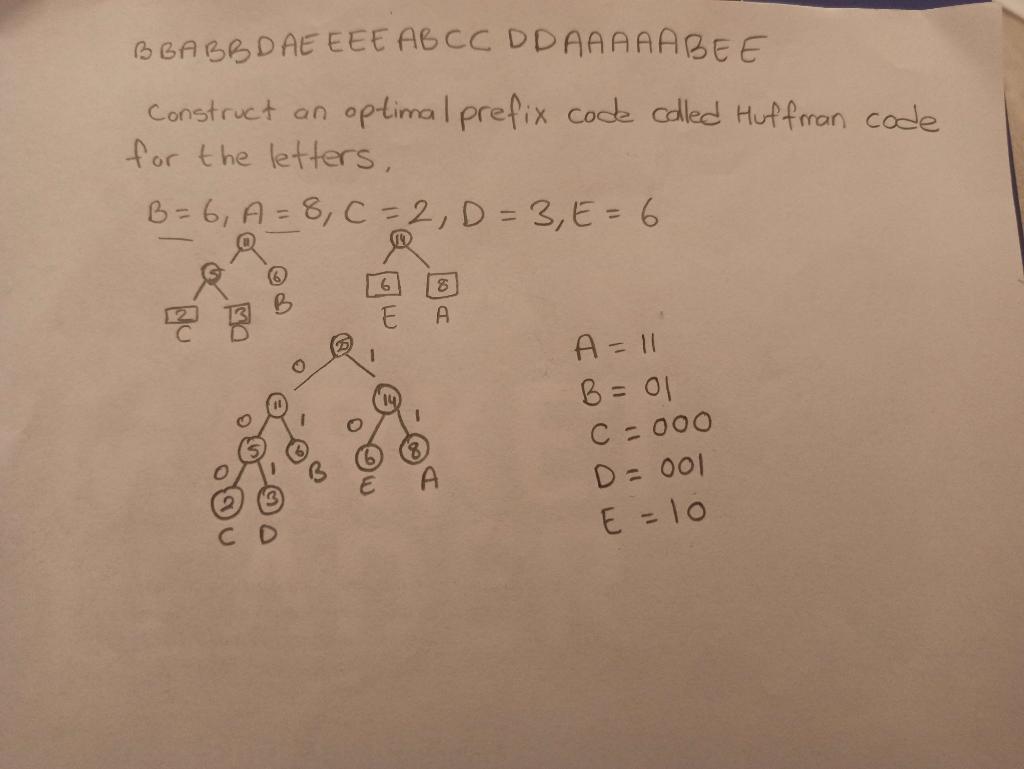 BBABBDAEEEEABCC DDAAAAABEE
Construct an optimal prefix code called Huffman code
for the letters,
B = 6, A = 8, C = 2, D = 3, E = 6
11
5 6
B
2 3
C D
14
6 8
E A
25
0 1
11 14
0 1 0 1
5 6 6 8
B E A
0 1
2 3
C D
A = 11
B = 01
C = 000
D = 001
E = 10